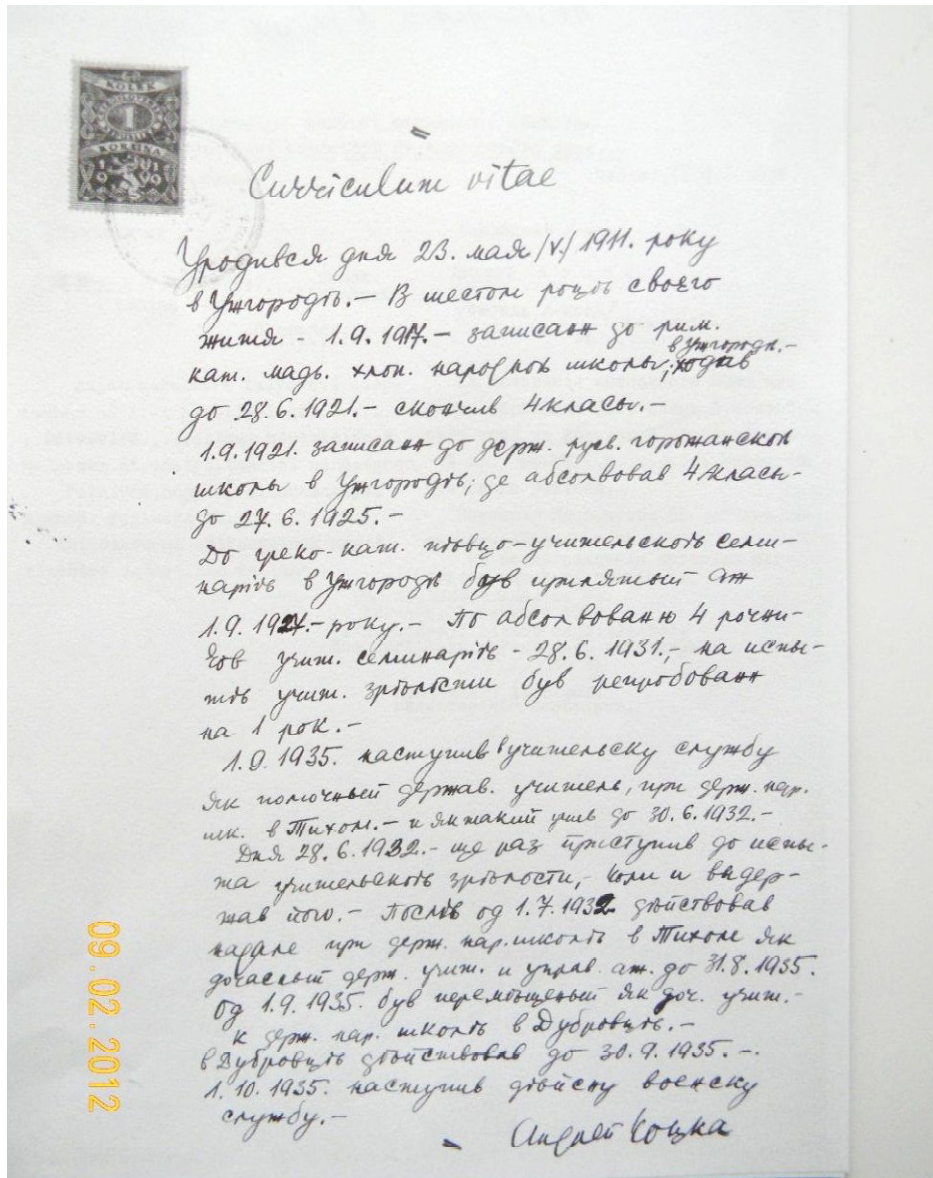 KOLEK
1
KORUNA
1919
Curriculum vitae
Уродився дня 23. мая /V./ 1911. року
в Ужгородѣ.– В шестом роцѣ своего
житя - 1.9.1917.– записан до рим.
кат. мадь. хлоп. народноѣ школы, в Ужгородѣ.– ходив
до 28.6.1921.– скончив 4 класы.–
1.9.1921. записан до держ. русь. горожанскоѣ
школы в Ужгородѣ, де абсолвовав 4 класы-
до 27.6.1925.–
До греко-кат. пѣвцо-учительскоѣ семи-
нарiѣ в Ужгородѣ був принятый аж
1.9.1927.– року.– По абсолвованю 4 рочни-
ков учит. семинарiѣ - 28.6.1931.–, на испы-
тѣ учит. зрѣлости був репробован
на 1 рок.–
1.9.1935. наступив в учительску службу
як помочный держав. учитель, при держ. нар.
шк. в Тихом.– и як такий учив до 30.6.1932.–
Дня 28.6.1932.– ще раз приступив до испы-
та учительскоѣ зрѣлости,– коли и выдер-
жав його.– Послѣ од 1.7.1932 дѣйствовав
надале при держ. нар. школѣ в Тихом як
дочасный держ. учит. и управ. аж. до 31.8.1935.
Од 1.9.1935. був перемѣщеный як доч. учит.–
к держ. нар. школѣ в Дубровцѣ.–
в Дубровцѣ дѣйствовав до 30.9.1935.–.
1.10.1935. наступив дѣйсну военску
службу.–
Андрей Коцка
09.02.2012